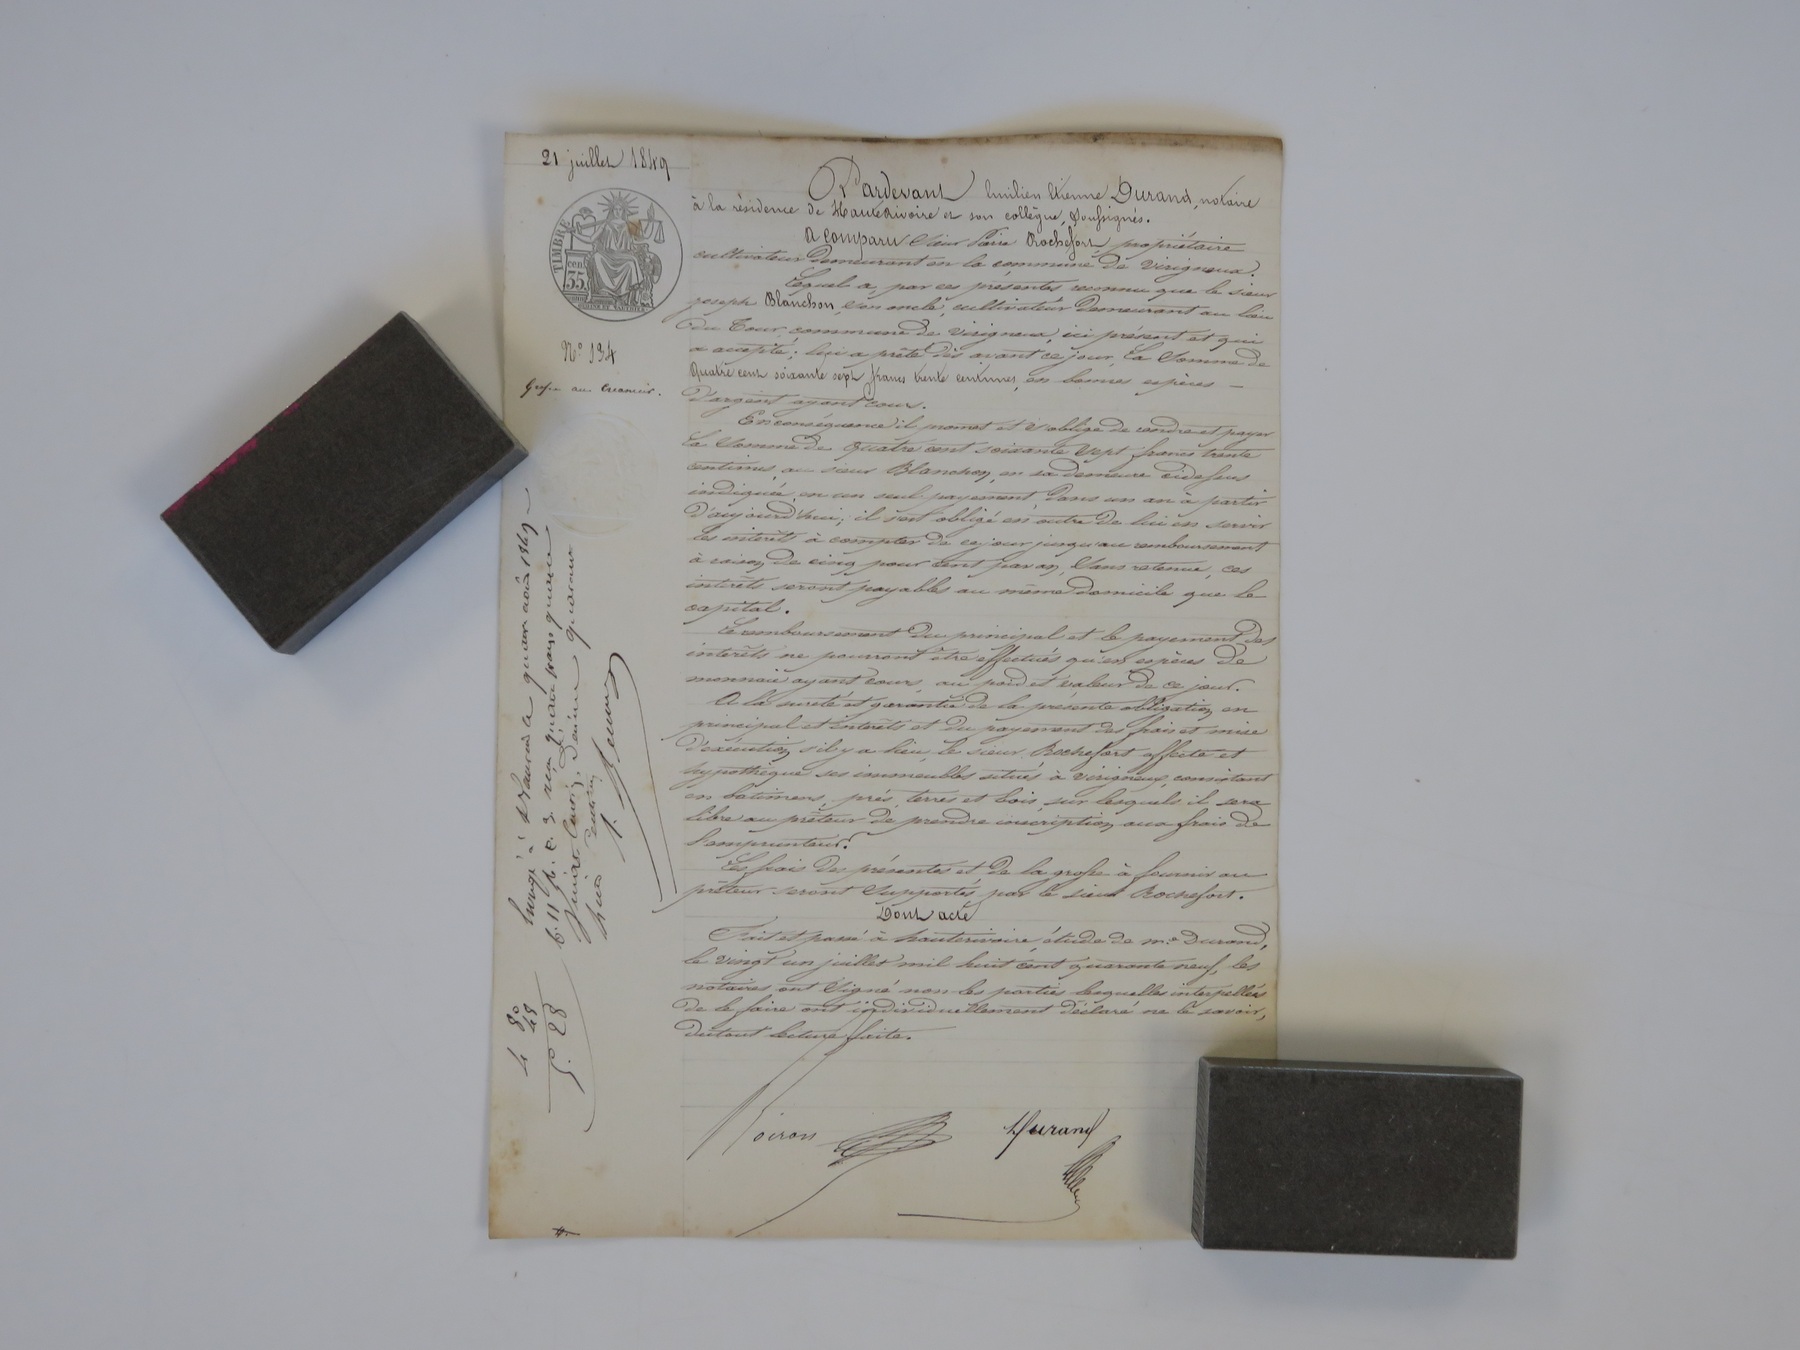 21 juillet 1849
TIMBRE
35
cen.
N° 134
Grosse au créancier.
Pardevant Emilien Etienne Durand, notaire
à la résidence de Hauterivoire et son collègue, soussignés.
A comparu Sieur Pierre Rochefort, propriétaire
cultivateur demeurant en la commune de Virigneux.
Lequel a, par ces présentes reconnu que le sieur
joseph Blanchon, son oncle, cultivateur demeurant au lieu
du Tour, commune de Virigneux, ici présent et qui
a accepté; lui a prêté dès avant ce jour, la somme de
Quatre cent soixante sept francs trente centimes, en bonnes espèces —
d'argent ayant cours.
En conséquence il promet et s'oblige de rendre et payer
la somme de Quatre cent soixante sept francs trente
centimes, au sieur Blanchon, en sa demeure cidessus
indiquée, en un seul payement, dans un an à partir
d'aujourd'hui; il s'est obligé en outre de lui en servir
les intérêts à compter de ce jour jusqu'au remboursement
à raison de cinq pour cent par an, sans retenue, ces
intérêts seront payables au même domicile que le
capital.
Le remboursement du principal et le payement des
intérêts ne pourront être effectués qu'en espèces de
monnaie ayant cours, au poid et valeur de ce jour.
A la sureté et garantie de la présente obligation en
principal et intérêts et du payement des frais et mise
d'exécution s'il y a lieu, le sieur Rochefort affecte et
hypothèque ses immeubles situés à Virigneux, consistant
en batimens, prés, terres et bois, sur lesquels il sera
libre au prêteur de prendre inscription aux frais de
l'emprunteur.
Les frais des présentes et de la grosse à fournir au
prêteur seront supportés par le sieur Rochefort.
Dont acte
Fait et passé à hauterivoire, étude de m.e Durand,
le vingt un juillet mil huit cent quarante neuf, les
notaires ont signé non les parties lesquelles interpellées
de le faire ont individuellement déclaré ne le savoir,
du tout lecture faite.
Durand
à St Laurent le quatre août 1849
4 80
48
5. 28